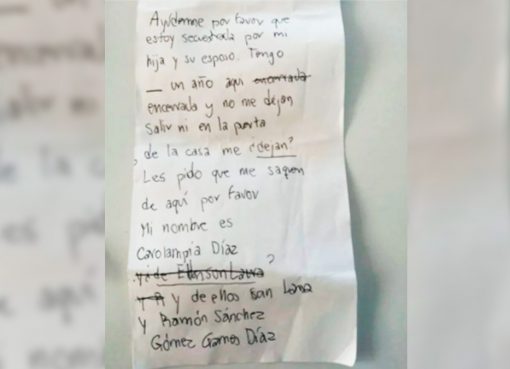 Ayúdenme por favor que
estoy secuestrada por mi
hija y su esposo. Tengo
_ un año aqui encerrada
encerrada y no me dejan
salir ni en la puerta
de la casa me ¿dejan?
Les pido que me saquen
de aquí por favor
Mi nombre es
Carolampia Díaz
?
y de ellos son Lana
y Ramón Sánchez
Gómez Gamos Díaz